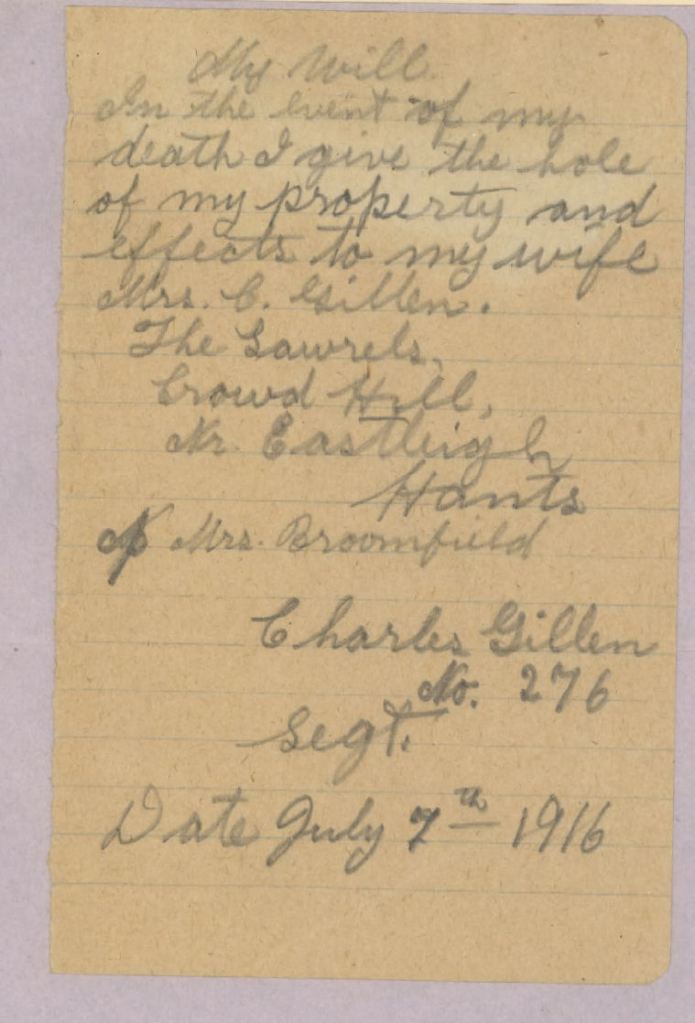 My Will.
In the event of my
death I give the hole
of my property and
effects to my wife
Mrs. C. Gillen.
The Lawrels,
Crowd Hill,
Nr. Eastleigh
Hants
Mrs. Broomfield
Charles Gillen
No. 276
Segt.
Date July 7th 1916